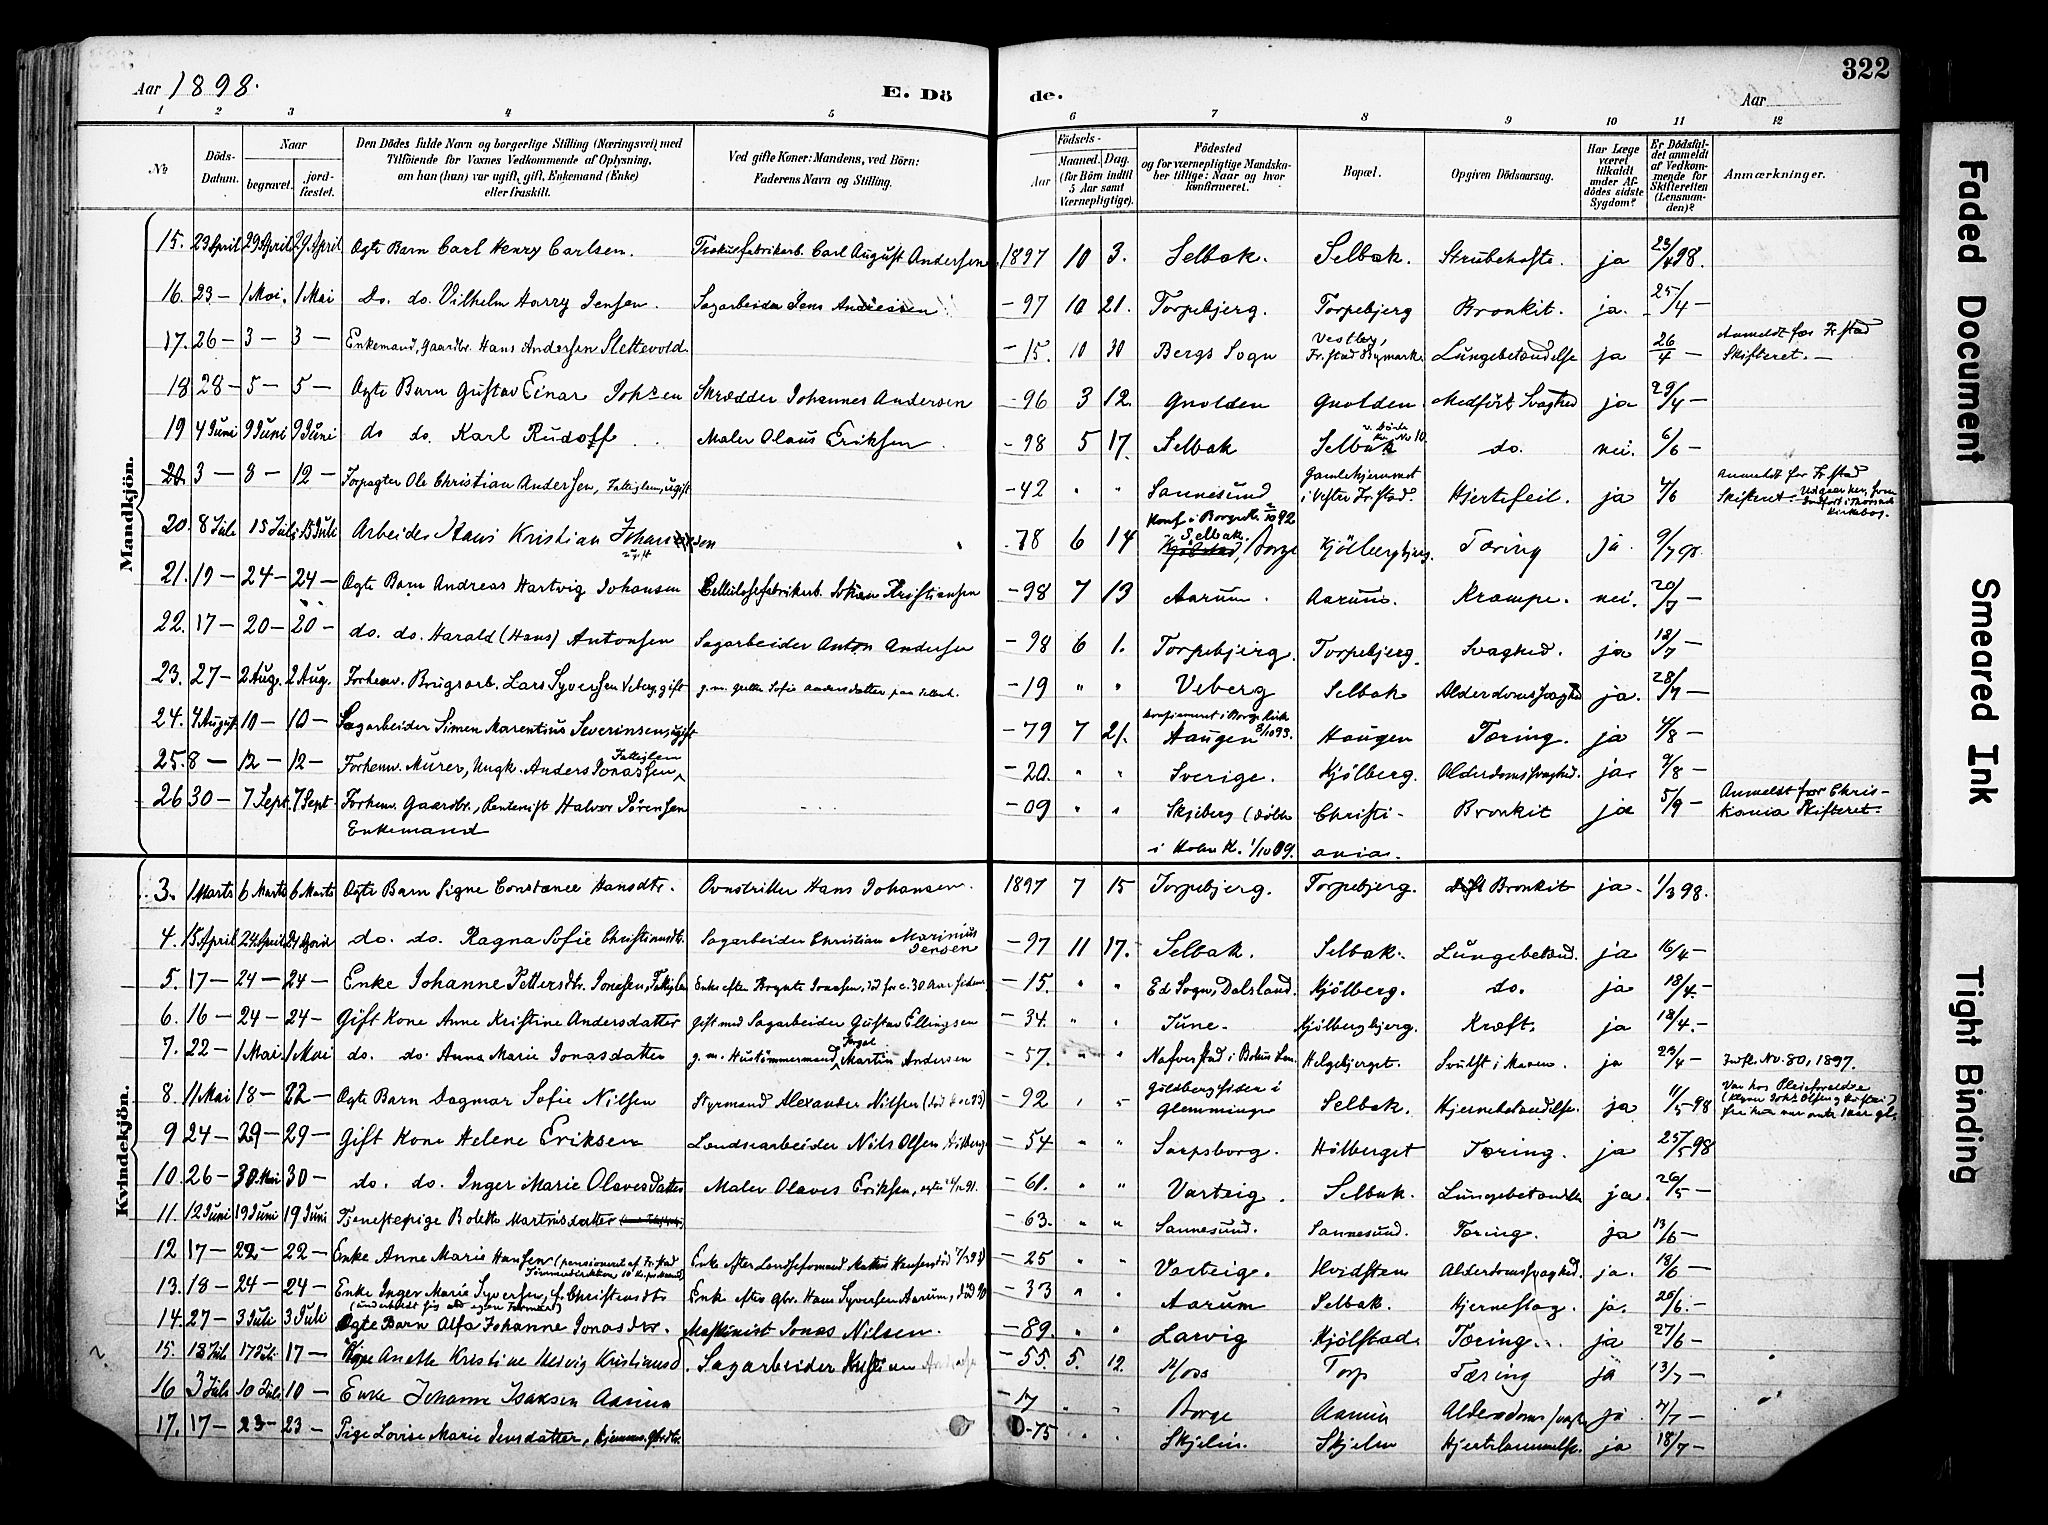 322
Aar 1898.
E. Dö de.
Aar
1 2 3 4 5 6 7 8 9 10 11 12
No
Döds-Datum.
Naar
begravet.
jord-fæstet.
Den Dödes fulde Navn og borgerlige Stilling (Næringsvei) med
Tilföiende for Voxnes Vedkommende af Oplysning,
om han (hun) var ugift, gift, Enkemand (Enke)
eller fraskilt.
Ved gifte Koner: Mandens, ved Börn:
Faderens Navn og Stilling.
Födsels-
Aar
Maaned. Dag.
(for Börn indtil
5 Aar samt
Værnepligtige).
Födested
og for værnepligtige Mandska-
ber tillige: Naar og hvor
konfirmeret.
Bopæl.
Opgiven Dödsaarsag.
Har Læge
været
tilkaldt
under Af-
dödes sidste
Sygdom?
Er Dödsfal-
det anmeldt
af Vedkom-
mende for
Skifteretten
(Lensman-
den)?
Anmærkninger.
Mandkjön.
15. 23 April 29 April 29 April Ægte Barn Carl Henry Carlsen. Carl August Andersen 1897 10 3. Selbak. Selbak. Strubehoste. ja 23/4 98.
16. 23 — 1 Mai. 1 Mai Do. do. Vilhelm Harry Jensen. Sagarbeider Jens — 97 10 21. Torpebjerg. Torpebjerg Bronkit. ja. 25/4 —
17. 26 — 3 — 3 — Enkemand, Gaardbr. Hans Andersen Slettevold — 15. 10 30 Bergs Sogn Fr.stad Bymark Lungebetændelse ja 26/4 — Anmeldt for Fr.stad
Skifteret. —
18 28 — 5 — 5 — Ægte Barn Gustav Einar Skrædder Johannes Andersen — 96 3 12. Gnolden Gnolden. Medfört Svaghed ja 29/4 —
19 4 Juni 9 Juni 9 Juni do do. Karl Rudolf Maler Olaus Eriksen. — 98 5 17. Selbak Selbak do. nei. 6/6 —
20. 3 — 8 — 12 — Ole Christian Andersen, ugift — 42 " " Sannesund Gamlehjemmet
i Vester Fr.stad. Hjertefeil. ja 4/6 Anmeldt for Fr.stad
Skifteret
20. 8 Juli 15 Juli 15 Juli Arbeider Hans Kristian
ugift — 78 6 14 Selbak, Borge Kjölbergbjerg. Tæring ja. 9/7
21. 19 — 24 — 24 — Ægte Barn Andreas Hartvig Johansen Cellulosefabrikarb. Johan Kristiansen — 98 7 13 Aarum. Aarum. Krampe. nei. 20/7 —
22. 17 — 20 — 20 — do. do. Harald (Hans) Antonsen Sagarbeider Anton Andersen — 98 6 1. Torpebjerg. Torpebjerg. Svaghed. ja 18/7 —
23. 27 — 2 Aug. 2 Aug. Forhenv. Brugsarb. Lars Syversen Veberg, gift — 19 " " Veberg Selbak Alderdomssvaghed ja. 28/7 —
24. 4 August 10 — 10 — Sagarbeider Simen Marentius Severinsen, ugift — 79 7 21. Haugen Haugen Tæring. ja 4/8 —
25. 8 — 12 — 12 — Forhenv. Murer, Ungk. Anders Jonassen, — 20. " " Sverige. Kjölberg. Alderdomssvaghed. ja. 9/8 —
26 30 — 7 Sept. 7 Sept. Forhenv. Gaardbr., Rentenist Halvor Sörensen
Enkemand — 09 " " Skjeberg (döbt
i 1/10 09. Christi-
ania. Bronkit ja 5/9 — Anmeldt for Chris-
tiania Skifteret.
Kvindekjön.
3. 1 Marts 6 Marts 6 Marts Ægte Barn Signe Constance Hansdtr. Hans Johansen. 1897 7 15 Torpebjerg. Torpebjerg. Bronkit ja. 1/3 98.
4. 15 April 24 April 24 April do. do. Ragna Sofie Christiansdtr. Sagarbeider Christian Marinius
Jensen — 97 11 17. Selbak. Selbak. Lungebetænd. ja 16/4 —
5. 17 — 24 — 24 — Enke Johanne Pettersdtr. Jonesen, Enke efter Jonesen, död for c. 30 Aar siden. — 15. " " Ed Sogn, Dalsland. Kjölberg. do. ja 18/4. —
6. 16 — 24 — 24 — Gift Kone Anne Kristine Andersdatter Gift med Sagarbeider Gustav Ellingsen — 34. " " Tune. Kjölbergbjerg. Kræft. ja 18/4. —
7. 22 — 1 Mai. 1 Mai do. do. Anna Marie Jonasdatter g. m. Hustömmermand Martin Andersen — 57. " " Helgebjerget. Svulst i Maven. ja 23/4 — Indfl. No. 80, 1897.
8. 11 Mai 18 — 22 — Ægte Barn Dagmar Sofie Nilsen Styrmand Alexander Nilsen — 92 Glemminge Selbak. Hjernebetændelse. ja 11/5 98 Var hos Pleieforældre
9 24 — 29 — 29 — Gift Kone Helene Eriksen Landsearbeider Nils Olsen — 54 " " Sarpsborg. Hölberget Tæring. ja 25/5 98
10. 26 — 30 Mai 30 — do. do. Inger Marie Olavesdatter Maler Olaves Eriksen, — 61. " " Varteig. Selbak. Lungebetændelse ja. 26/5 —
11. 12 Juni 19 Juni 19 Juni Tjenestepige Bolette Martinsdatter — 63. " " Sannesund. Sannesund. Tæring. ja 13/6 —
12 17 — 22 — 22 — Enke Anne Marie Hansen (pensioneret af Fr.stad Enke efter — 25 " " Varteig. Hvidsten Alderdomssvaghed. ja. 18/6 —
13. 18 — 24 — 24 — Enke Inger Marie Syversen, f. Christensdtr Enke efter Gbr. Hans Syversen Aarum, död 90 — 33 " " Aarum Selbak. Hjerneslag. ja. 20/6. —
14. 27 — 3 Juli 3 Juli Ægte Barn Alfa Johanne Jonasdtr. Maskinist Jonas Nilsen. — 89. " " Larvig Kjölstad Tæring. ja 27/6 —
15. 13 Juli 17 Juli 17 — Kone Anette Kristine Hedvig Kristiansd. Sagarbeider — 55. 5. 12. Moss Torp Tæring ja 13/7 —
16 3 Juli 10 Juli 10 — Enke Johanne Isaksen Aarum — 17 " " Borge Aarum ja. 4/7 —
17. 17 — 23 — 23 — Pige Lovise Marie Jensdatter, — 75 " " Skjelin. Skjelin ja 18/7 —
Faded Document
Smeared Ink
Tight Binding